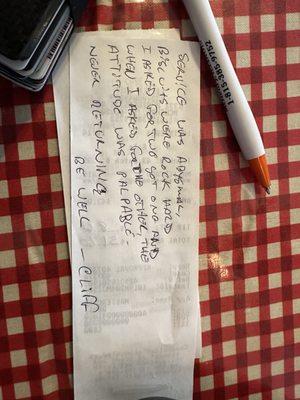 SERVICE WAS ABYSMAL,
BISCUITS WERE ROCK HARD
I ASKED FOR TWO GOT ONE AND
WHEN I ASKED FOR THE OTHER, THE
ATTITUDE WAS PALPABLE.
NEVER RETURNING
BE WELL —CLIFF
1-815-385-9752